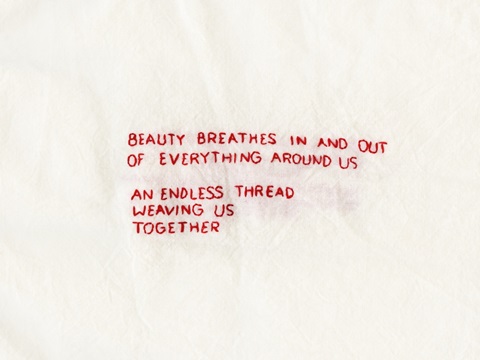 BEAUTY BREATHES IN AND OUT
OF EVERYTHING AROUND US
AN ENDLESS THREAD
WEAVING US
TOGETHER